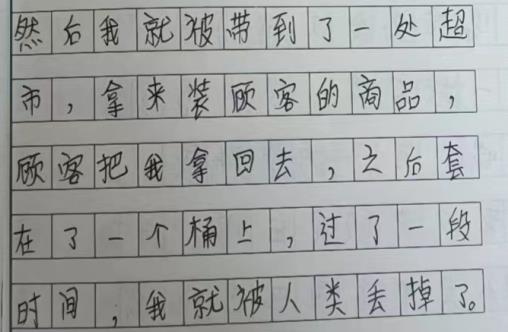 然后我就被带到了一处超
市，拿来装顾客的商品，
顾客把我拿回去，之后套
在了一个桶上，过了一段
时间，我就被人类丢掉了。